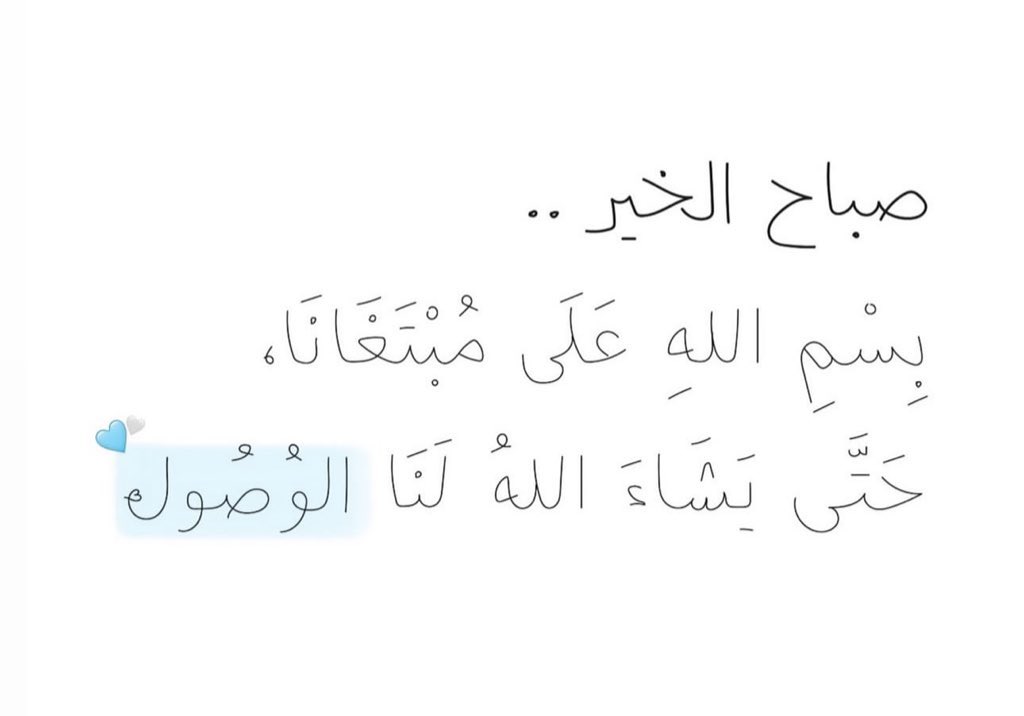 صباح الخير ..
بِسْمِ اللهِ عَلَى مُبْتَغَانَا،
حَتَّى يَشَاءَ اللهُ لَنَا الوُصُول